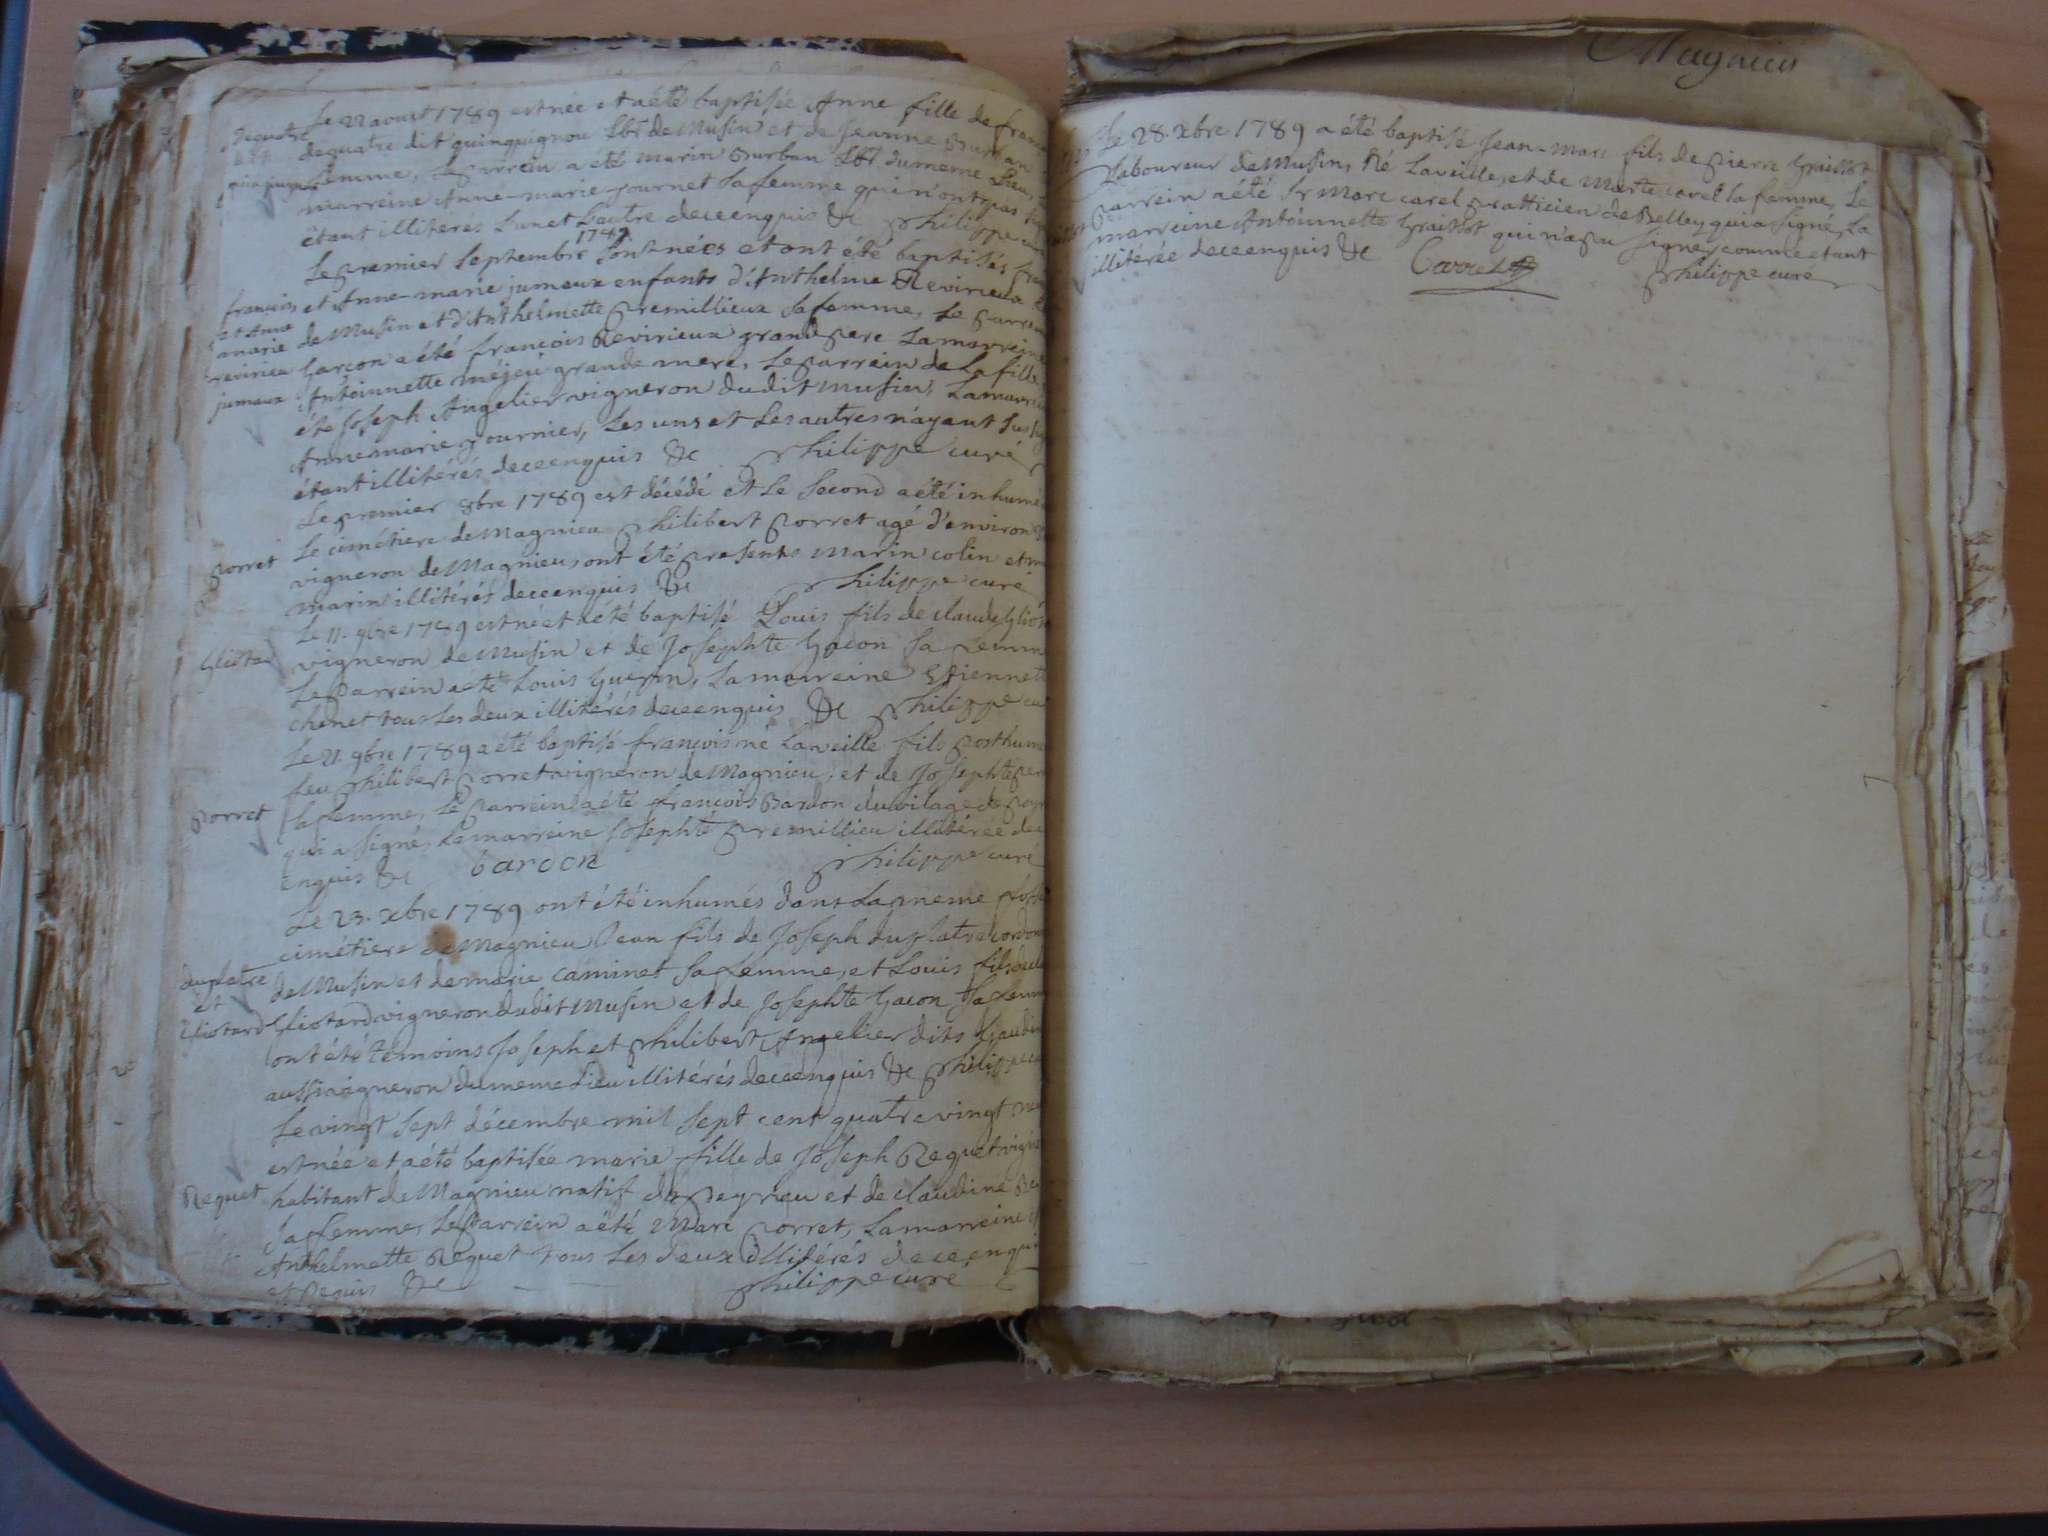 Le 22 aoust 1789 est née et a été baptisée Anne fille de
dequatre dit quinquignon Lbr de Musin et de Jeanne Burban
femme, Le parrein a été Marin Burban Lbr du meme Lieu
marreine Anne-marie journet sa femme qui n'ont pas
étant illiterés L'un et L'autre de ce enquis &c philippe
Le premier Septembre 1789 sont nées et ont été baptisés
françois
et Anne
marie
revirieu
jumeaux
et Anne-marie jumeaux enfants d'Anthelme Revirieux
de Musin et d'Anthelmette premillieux sa femme, Le parrein
garçon a été françois Revirieux grand pere La marreine
Antoinette méjeu grande mere, Le parrein de La fille
été Joseph Angelier vigneron dudit Musin, La marreine
Annemarie fournier, Les uns et Les autres n'ayant
étant illitérés de ce enquis &c philippe curé
Le premier 8bre 1789 est décédé et Le Second a été inhumé
porret
Le cimétiere de Magnieu philibert porret agé d'environ
vigneron de Magnieu ont été presents Marin colin et
marin illitérés de ce enquis &c philippe curé
Le 11. 9bre 1789 est né et a été baptisé Louis fils de claude
gliotard
vigneron de Musin et de Josephte gacon sa femme
Le parrein a été Louis guerin, La marreine Etiennette
chenet tous Les deux illitérés de ce enquis &c philippe
Le 21. 9bre 1789 a été baptisé françois né La veille fils posthume
feu philibert porret vigneron de Magnieu, et de Josephte
porret
sa femme, Le parrein a été françois Bardon du vilage de
qui a signé, La marreine Josephte premillieu illitérée de
enquis &c bardon philippe curé
Le 23. xbre 1789 ont été inhumés dans La meme fosse
cimétiere de Magnieu Jean fils de Joseph duplatre
duplatre
et
gliotard
de Musin et de marie caminet sa femme, et Louis fils de
gliotard vigneron dudit Musin et de Josephte gacon sa femme
ont été temoins Joseph et philibert Angelier dits
aussi vigneron du meme Lieu illitérés de ce enquis &c philippe
Le vingt sept décembre mil sept cent quatre vingt
est née et a été baptisée marie fille de Joseph Reguet
Reguet
habitant de Magnieu natif de peyrieu et de claudine
sa femme, Le parrein a été Marc porret, La marreine
Anthelmette Reguet tous Les deux illitérés de ce enquis
et requis &c philippe curé
Magnieu
Le 28. xbre 1789 a été baptisé Jean-Marc fils de pierre graillot
Laboureur de Musin, Né La veille, et de Marte carel sa femme, Le
parrein a été Sr Marc carel pratticien de Belley qui a signé, La
marreine Antoinnette graillot qui n'a pu signer comme etant
illitérée de ce enquis &c Carrel philippe curé